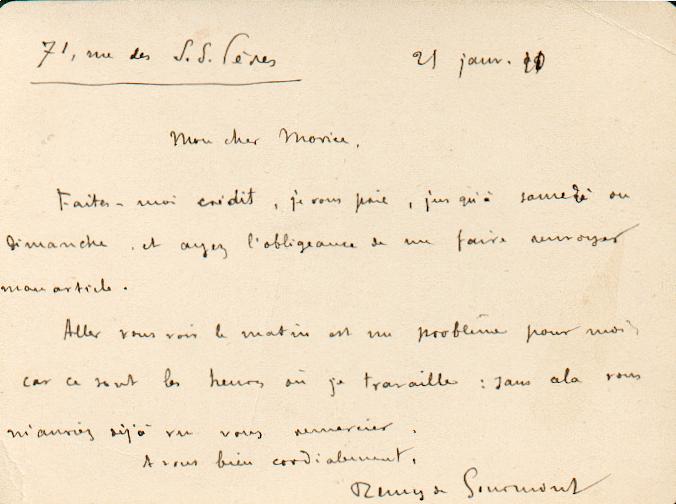 71, rue des S.S. Pères
21 janv.
Mon cher Morice,
Faites-moi crédit, je vous prie, jusqu'à samedi ou
dimanche et ayez l'obligeance de me faire renvoyer
mon article.
Aller vous voir le matin est un problème pour moi,
car ce sont les heures où je travaille : sans cela vous
m'auriez déjà vu vous remercier.
A vous bien cordialement,
Remy de Gourmont